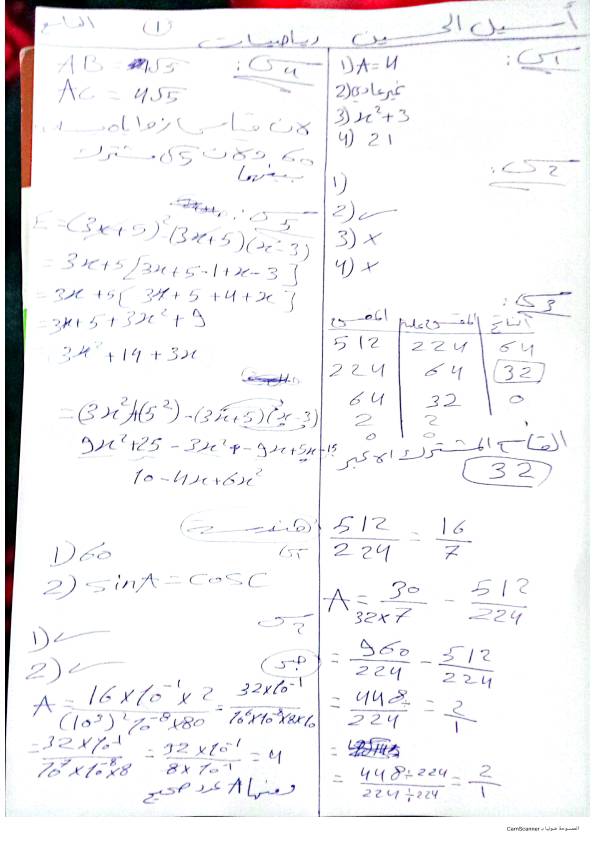 أسيل الحسين رياضيات (1) التاسع
س1:
1) A = 4
2) غير عادي
3) x² + 3
4) 21
س2:
1)
2) ✓
3) ×
4) ×
س3:
512 224 64
224 64 32
64 32 0
2 2
0 0
القاسم المشترك الأكبر
32
512/224 = 16/7
A = 30/32×7 - 512/224
= 960/224 - 512/224
= 448/224 = 2/1
= 448÷224/224÷224 = 2/1
س4:
AB = 4√5
AC = 4√5
لأن قياس زاوية
60 ولأن √5 مشترك
بينهما
س5:
E = (3x+5)² - (3x+5)(x-3)
= 3x+5[3x+5-1+x-3]
= 3x+5[3x+5+4+x]
= 3x+5+3x²+9
3x²+14+3x
= (3x²)+(5²)-(3x+5)(x-3)
9x²+25-3x²+-9x+5x-15
10-4x+6x²
هندسة
س1
1) 60
2) sinA = cosC
س2
1) ✓
2) ✓
A = 16×10⁻¹×2/(10³)²10⁻⁸×80 = 32×10⁻¹/10⁶×10⁻⁸×8×10
= 32×10⁻¹/10⁷×10⁻⁸×8 = 32×10⁻¹/8×10⁻¹ = 4
ومنها A عدد صحيح
الممسوحة ضوئيا بـ CamScanner